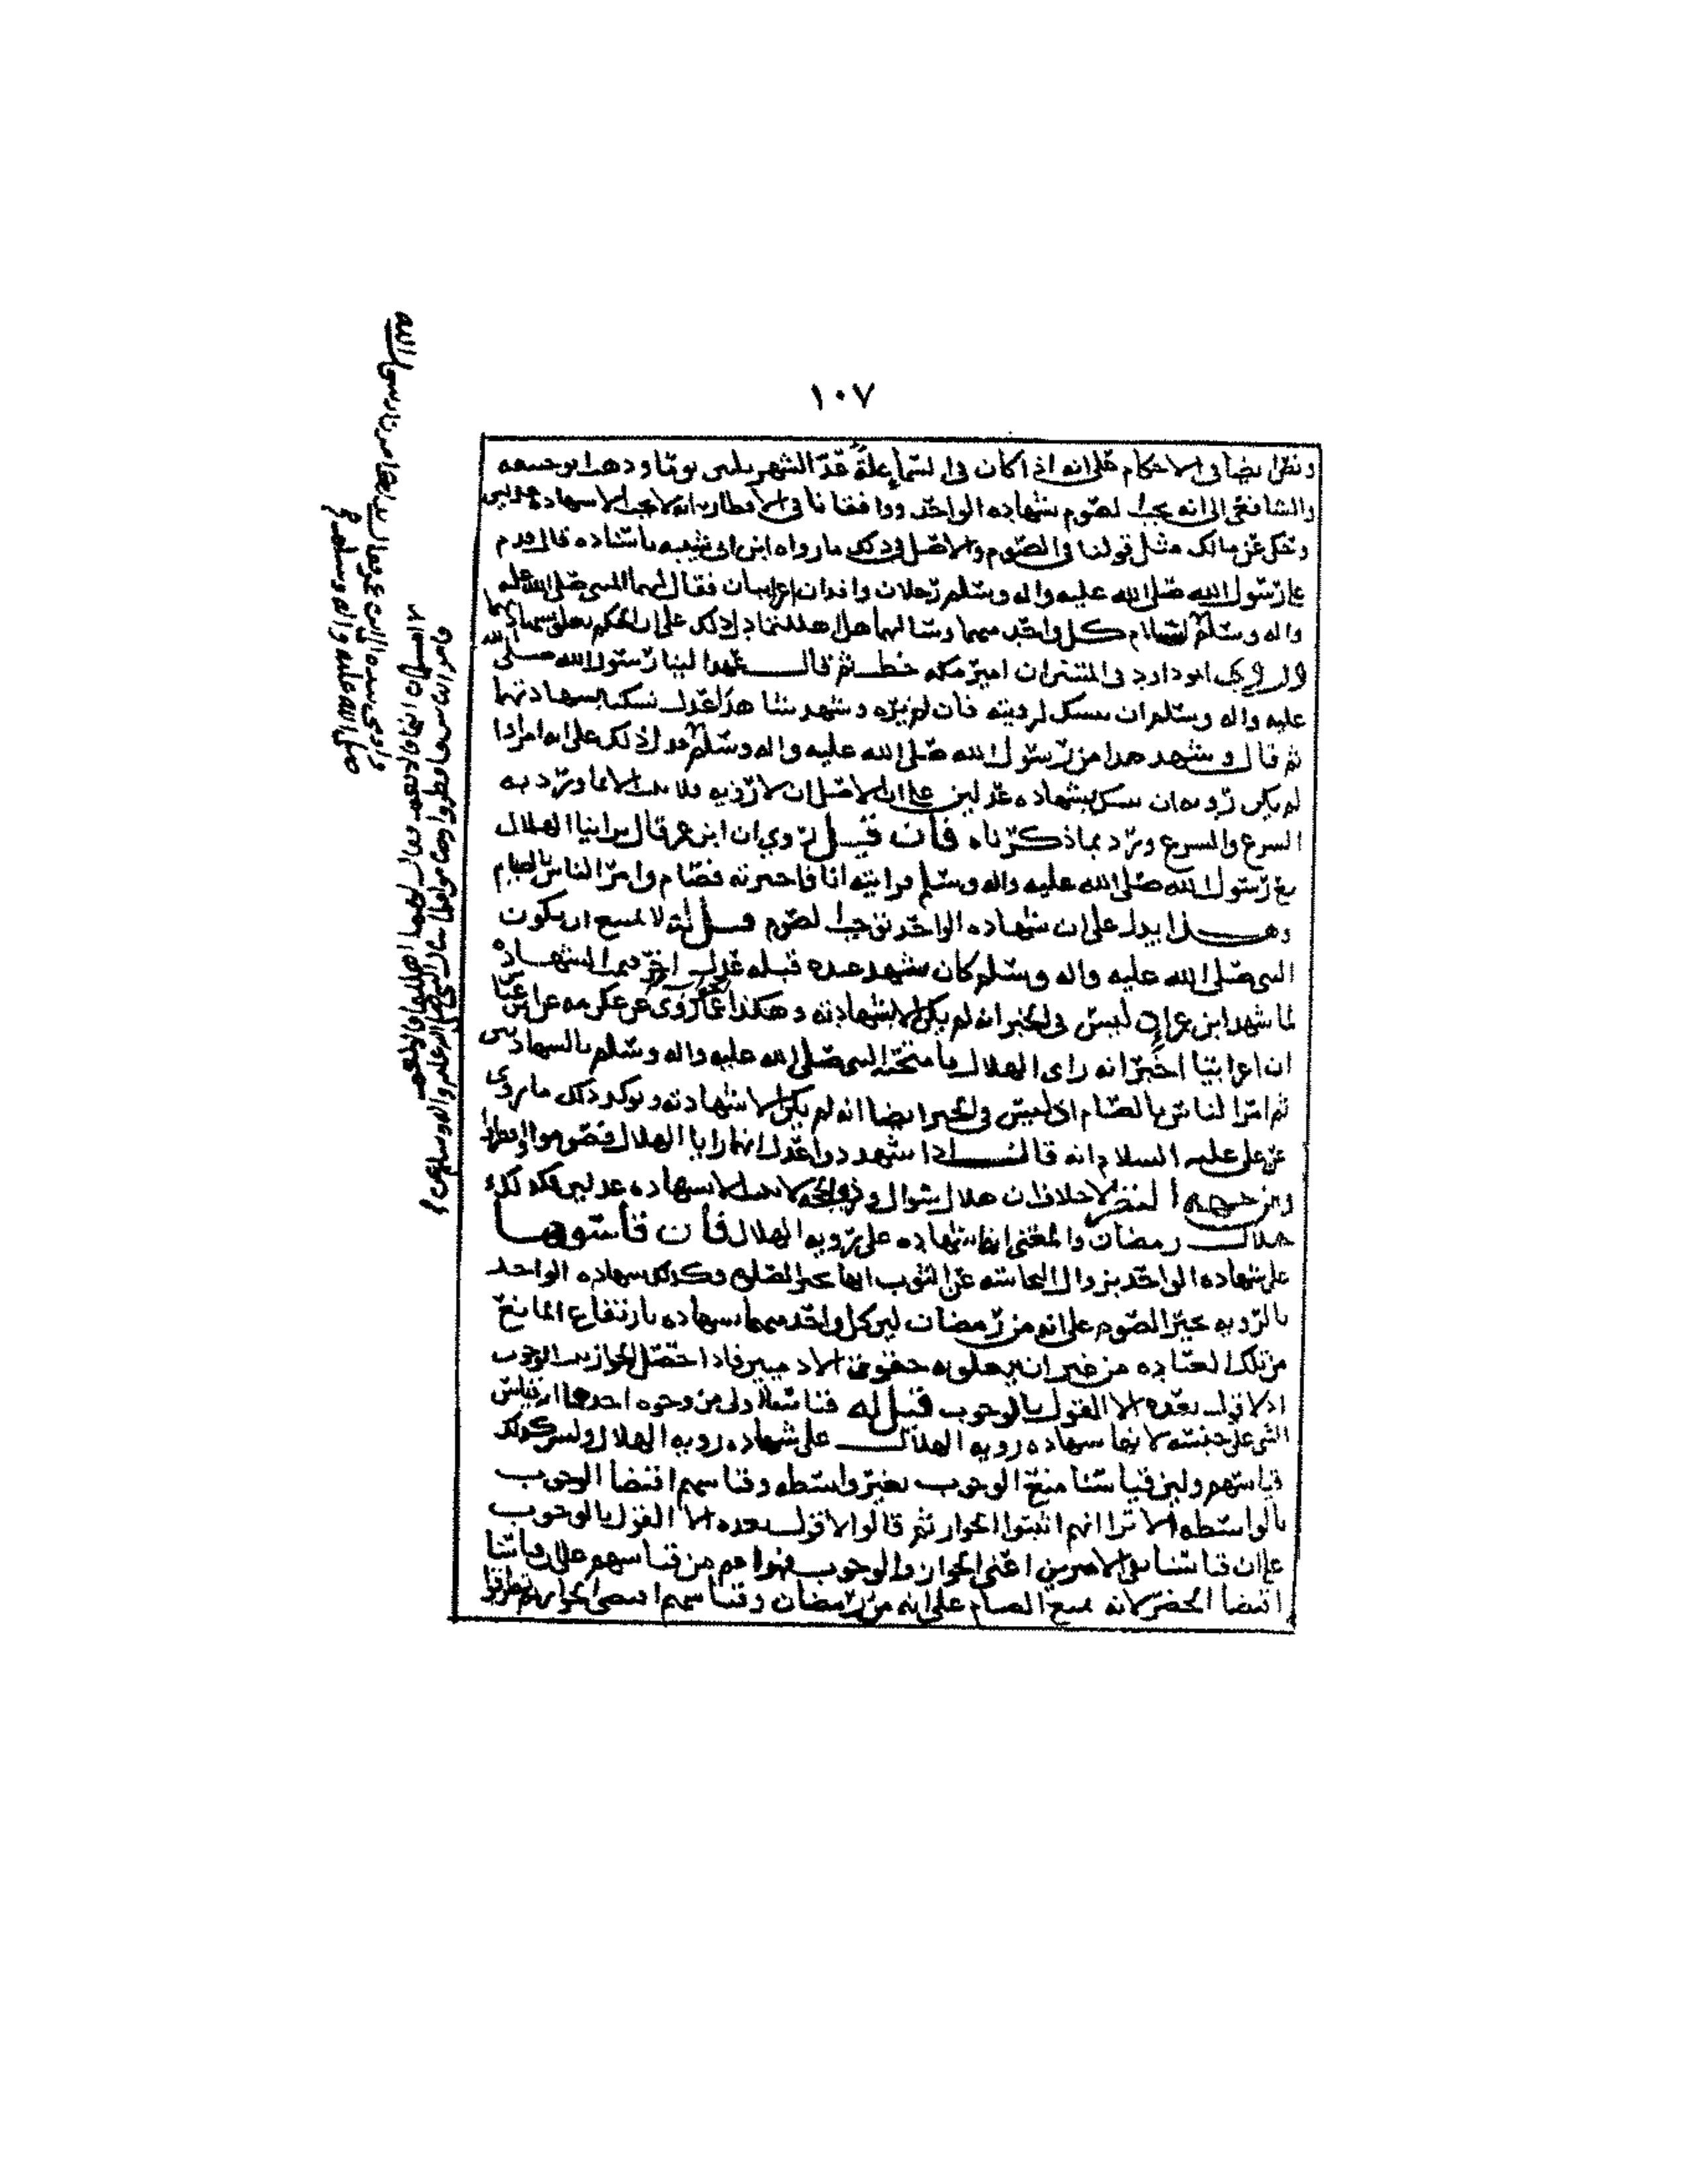 ١٠٧
ونص ايضا فى الاحكام على انه اذا كان فى السماء علة عد الشهر ثلثين يوما وذهب ابو حنيفه
والشافعى الى انه يجب الصوم بشهاده الواحد ووافقانا فى الافطار انه لا يجب الا بشهاده عدلين
وحكى عن مالك مثل قولنا فى الصوم والاصل فى ذلك ما رواه ابن ابى شيبه باسناده قال قدم
على رسول الله صلى الله عليه واله وسلم رجلان وافدان اعرابيان فقال لهما النبى صلى الله عليه
واله وسلم كل واحد منهما وسالهما هل اهللتما فدل ذلك على ان الحكم تعلق بشهادتهما
وروى ابو داود فى السنن ان امير مكه خطب ثم قال عهد الينا رسول الله صلى الله
عليه واله وسلم ان ننسك لرويته فان لم نره وشهد شاهدا عدل نسكنا بشهادتهما
ثم قال وشهد هذا من رسول الله صلى الله عليه واله وسلم فدل ذلك على انه امر اذا
لم يكن رويه ان ننسك بشهاده عدلين على ان الاصل ان لا رويه فلا يثبت الا ما ورد به
الشرع والشرع ورد بما ذكرناه فان قيل روي ان ابن عمر قال تراءينا الهلال
مع رسول الله صلى الله عليه واله وسلم فرايته انا فاخبرته فصام وامر الناس بالصيام
وهذا يدل على ان شهاده الواحد توجب الصوم قيل له لا يمتنع ان يكون
النبى صلى الله عليه واله وسلم كان شهد عنده قبله عدل اخر فتمت الشهاده
لما شهد ابن عمر اذ ليس فى الخبر انه لم يكن الا شهادته وهكذا ما روى عن عكرمه عن ابن عباس
ان اعرابيا اخبر انه راى الهلال فامتحنه النبى صلى الله عليه واله وسلم بالشهادتين
ثم امر الناس بالصيام اذ ليس فى الخبر ايضا انه لم يكن الا شهادته ويوكد ذلك ما روى
عن على عليه السلام انه قال اذا شهد ذوا عدل انهما رايا الهلال فصوموا وافطروا
ومن جهه النظر لا خلاف ان هلال شوال وذى الحجه لا يثبت الا بشهاده عدلين فكذلك
هلال رمضان والمعنى انها شهاده على رويه الهلال فان قاسوها
على شهاده الواحد بزوال النجاسه عن الثوب انها تجيز الصلوه وكذلك شهاده الواحد
بالرويه تجيز الصوم على انه من رمضان لان كل واحد منهما شهاده بارتفاع المانع
من تلك العباده من غير ان يتعلق به حقوق الادميين فاذا حصل الجواز ثبت الوجوب
اذ لا قول بعده الا القول بالوجوب قيل له قياسنا اولى من وجوه احدها ان قياس
الشى على جنسه لانها شهاده رويه الهلال على شهاده رويه الهلال وليس كذلك
قياسهم ولان قياسنا منع الوجوب بغير واسطه وقياسهم اقتضا الوجوب
بالواسطه الا ترا انهم اثبتوا الجواز ثم قالوا لا قول بعده الا القول بالوجوب
على ان قياسنا نفى الامرين اعنى الجواز والوجوب فهو اعم من قياسهم على ان قياسنا
اقتضا الحضر لانه يمنع الصيام على انه من رمضان وقياسهم اقتضى الجواز